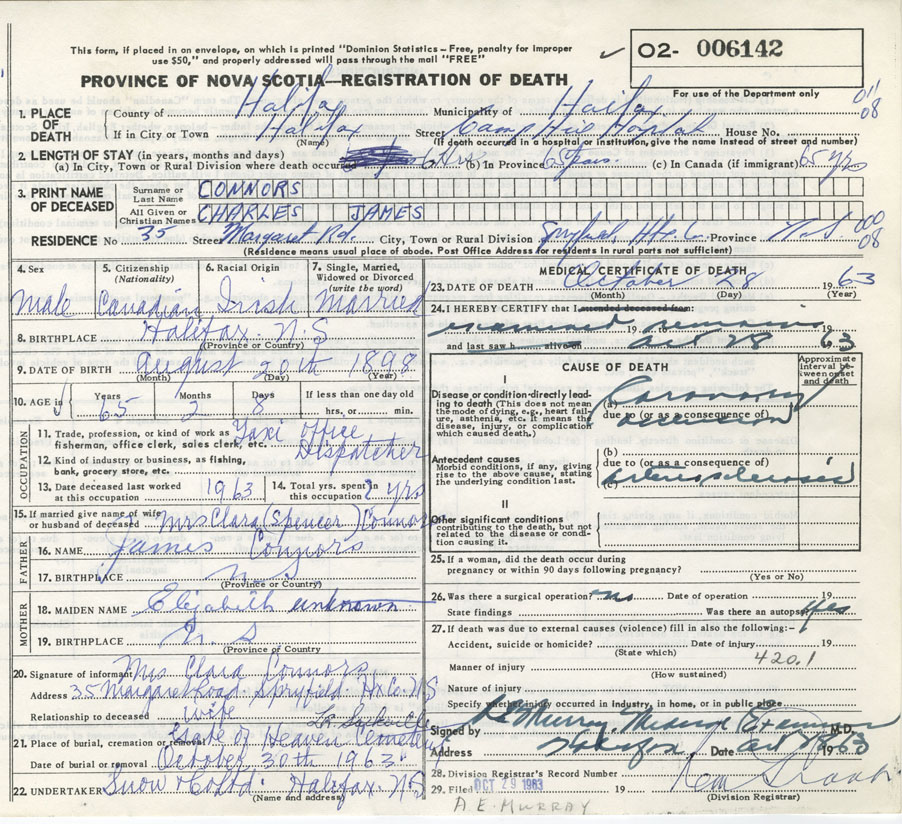 This form, if placed in an envelope, on which is printed "Dominion Statistics – Free, penalty for improper
use $50," and properly addressed will pass through the mail "FREE"
O2- 006142
PROVINCE OF NOVA SCOTIA—REGISTRATION OF DEATH
For use of the Department only
011
08
1. PLACE OF DEATH
County of Halifax Municipality of Halifax
If in City or Town Halifax Street Camp Hill Hospital House No.
(Name) (If death occurred in a hospital or institution, give the name instead of street and number)
2. LENGTH OF STAY (in years, months and days)
(a) In City, Town or Rural Division where death occurred 6 Hrs (b) In Province 65 years. (c) In Canada (if immigrant) 65 yrs
3. PRINT NAME OF DECEASED
Surname or Last Name CONNORS
All Given or Christian Names CHARLES JAMES
RESIDENCE No 35 Street Margaret Rd. City, Town or Rural Division Spryfield Hfx C. Province N.S.
000
08
(Residence means usual place of abode. Post Office Address for residents in rural parts not sufficient)
4. Sex
5. Citizenship (Nationality)
6. Racial Origin
7. Single, Married, Widowed or Divorced (write the word)
male Canadian Irish married
8. BIRTHPLACE Halifax N.S
(Province or Country)
9. DATE OF BIRTH August 20th 1898
(Month) (Day) (Year)
10. AGE in
Years Months Days If less than one day old
65 2 8 hrs. or min.
OCCUPATION
11. Trade, profession, or kind of work as fisherman, office clerk, sales clerk, etc. Taxi office
Dispatcher
12. Kind of industry or business, as fishing, bank, grocery store, etc.
13. Date deceased last worked at this occupation 1963
14. Total yrs. spent in this occupation 2 yrs
15. If married give name of wife or husband of deceased Mrs Clara (Spencer) Connors
FATHER
16. NAME James Connors
17. BIRTHPLACE N S
(Province or Country)
MOTHER
18. MAIDEN NAME Elizabeth unknown
19. BIRTHPLACE N. S
(Province of Country)
20. Signature of informant Mrs Clara Connors
Address 35 Margaret Road Spryfield Hx Co. N S
Relationship to deceased wife
Lr Sackville
21. Place of burial, cremation or removal Gate of Heaven Cemetery
Date of burial or removal October 30th 1963
22. UNDERTAKER Snow & Co Ltd. Halifax NS
(Name and address)
MEDICAL CERTIFICATE OF DEATH
23. DATE OF DEATH October 28 1963
(Month) (Day) (Year)
24. I HEREBY CERTIFY that I attended deceased from:
examined 19 remains 19
and last saw h alive on Oct 28 63
CAUSE OF DEATH
Approximate interval between onset and death
I
Disease or condition directly leading to death (This does not mean the mode of dying, e.g., heart failure, asthenia, etc. it means the disease, injury, or complication which caused death.)
Coronary
due to (or as a consequence of)
occlusion
Antecedent causes
Morbid conditions, if any, giving rise to the above cause, stating the underlying condition last.
(b)
due to (or as a consequence of)
(c) arteriosclerosis
II
Other significant conditions
contributing to the death, but not related to the disease or condition causing it.
25. If a woman, did the death occur during
pregnancy or within 90 days following pregnancy?
(Yes or No)
26. Was there a surgical operation? no Date of operation 19
State findings Was there an autopsy? yes
27. If death was due to external causes (violence) fill in also the following:–
Accident, suicide or homicide? Date of injury 19
(State which)
420.1
Manner of injury
(How sustained)
Nature of injury
Specify whether injury occurred in industry, in home, or in public place
Signed by Murray, Medical Examiner M.D.
Address Halifax Date Oct 1963
28. Division Registrar's Record Number
29. Filed OCT 29 1963 19
(Division Registrar)
A.E. MURRAY